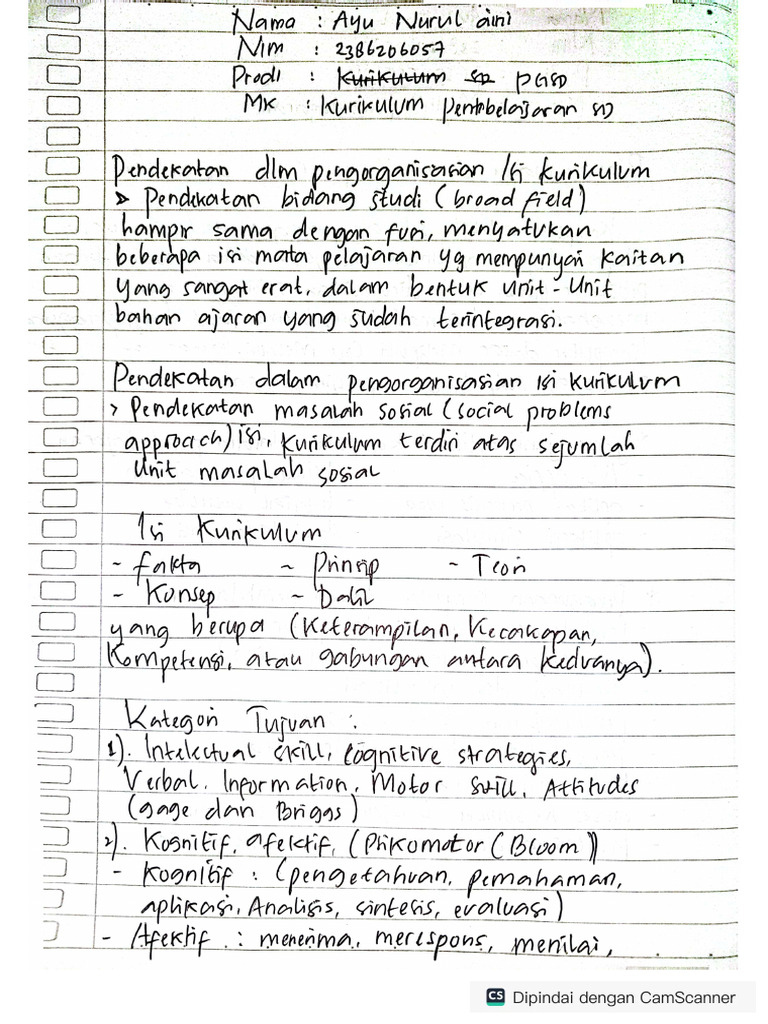 Nama : Ayu Nurul aini
Nim : 2386206057
Prodi : Kurikulum SD PGSD
MK : Kurikulum Pembelajaran SD
Pendekatan dlm pengorganisasian isi kurikulum
> Pendekatan bidang studi (broad field)
hampir sama dengan fusi, menyatukan
beberapa isi mata pelajaran yg mempunyai kaitan
yang sangat erat, dalam bentuk unit-unit
bahan ajaran yang sudah terintegrasi.
Pendekatan dalam pengorganisasian isi kurikulum
> Pendekatan masalah sosial (social problems
approach) isi, kurikulum terdiri atas sejumlah
unit masalah sosial
Isi Kurikulum
- fakta ~ Prinsip - Teori
- Konsep ~ Dalil
yang berupa (Keterampilan, Kecakapan,
Kompetensi, atau gabungan antara keduanya).
Kategori Tujuan :
1). Intelectual skill, cognitive strategies,
Verbal. Information, Motor skill, Attitudes
(gage dan Briggs)
2). Kognitif, afektif, (Psikomotor (Bloom))
- Kognitif : (pengetahuan, pemahaman,
aplikasi, Analisis, sintesis, evaluasi)
- Afektif : menerima, merespons, menilai,
CS Dipindai dengan CamScanner